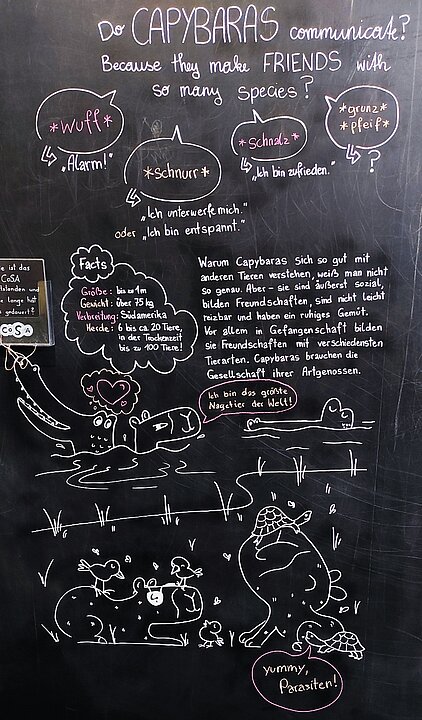 Do CAPYBARAS communicate?
Because they make FRIENDS with
so many species?
*Wuff*
"Alarm!"
*schnurr*
"Ich unterwerfe mich."
oder "Ich bin entspannt."
*Schnalz*
"Ich bin zufrieden."
*grunz*
*pfeif*
?
Facts
Größe: bis zu 1m
Gewicht: über 75 kg
Verbreitung: Südamerika
Herde: 6 bis ca. 20 Tiere,
in der Trockenzeit
bis zu 100 Tiere!
Warum Capybaras sich so gut mit
anderen Tieren verstehen, weiß man nicht
so genau. Aber - sie sind äußerst sozial,
bilden Freundschaften, sind nicht leicht
reizbar und haben ein ruhiges Gemüt.
Vor allem in Gefangenschaft bilden
sie Freundschaften mit verschiedensten
Tierarten. Capybaras brauchen die
Gesellschaft ihrer Artgenossen.
e ist das
CoSA
tstanden und
e lange hat
gedauert?
COSA
Ich bin das größte
Nagetier der Welt!
yummy,
Parasiten!